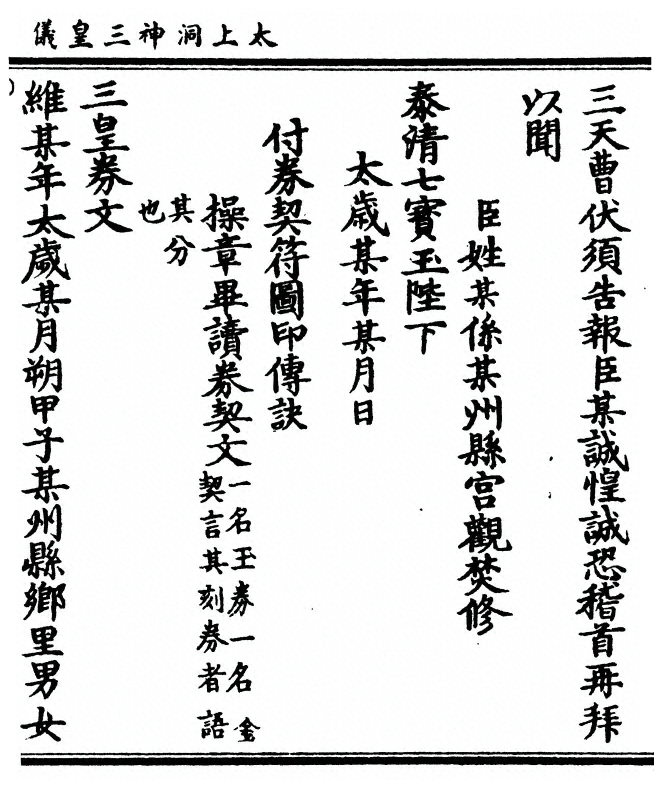 太上洞神三皇儀
三天曹伏須告報臣某誠惶誠恐稽首再拜
以聞
臣姓某係某州縣宮觀焚修
泰清七寶玉陛下
太歲某年某月日
付券契符圖印傳訣
操章畢讀券契文
一名玉券一名金
契言其刻券者語
其分
也
三皇券文
維某年太歲某月朔甲子某州縣鄉里男女